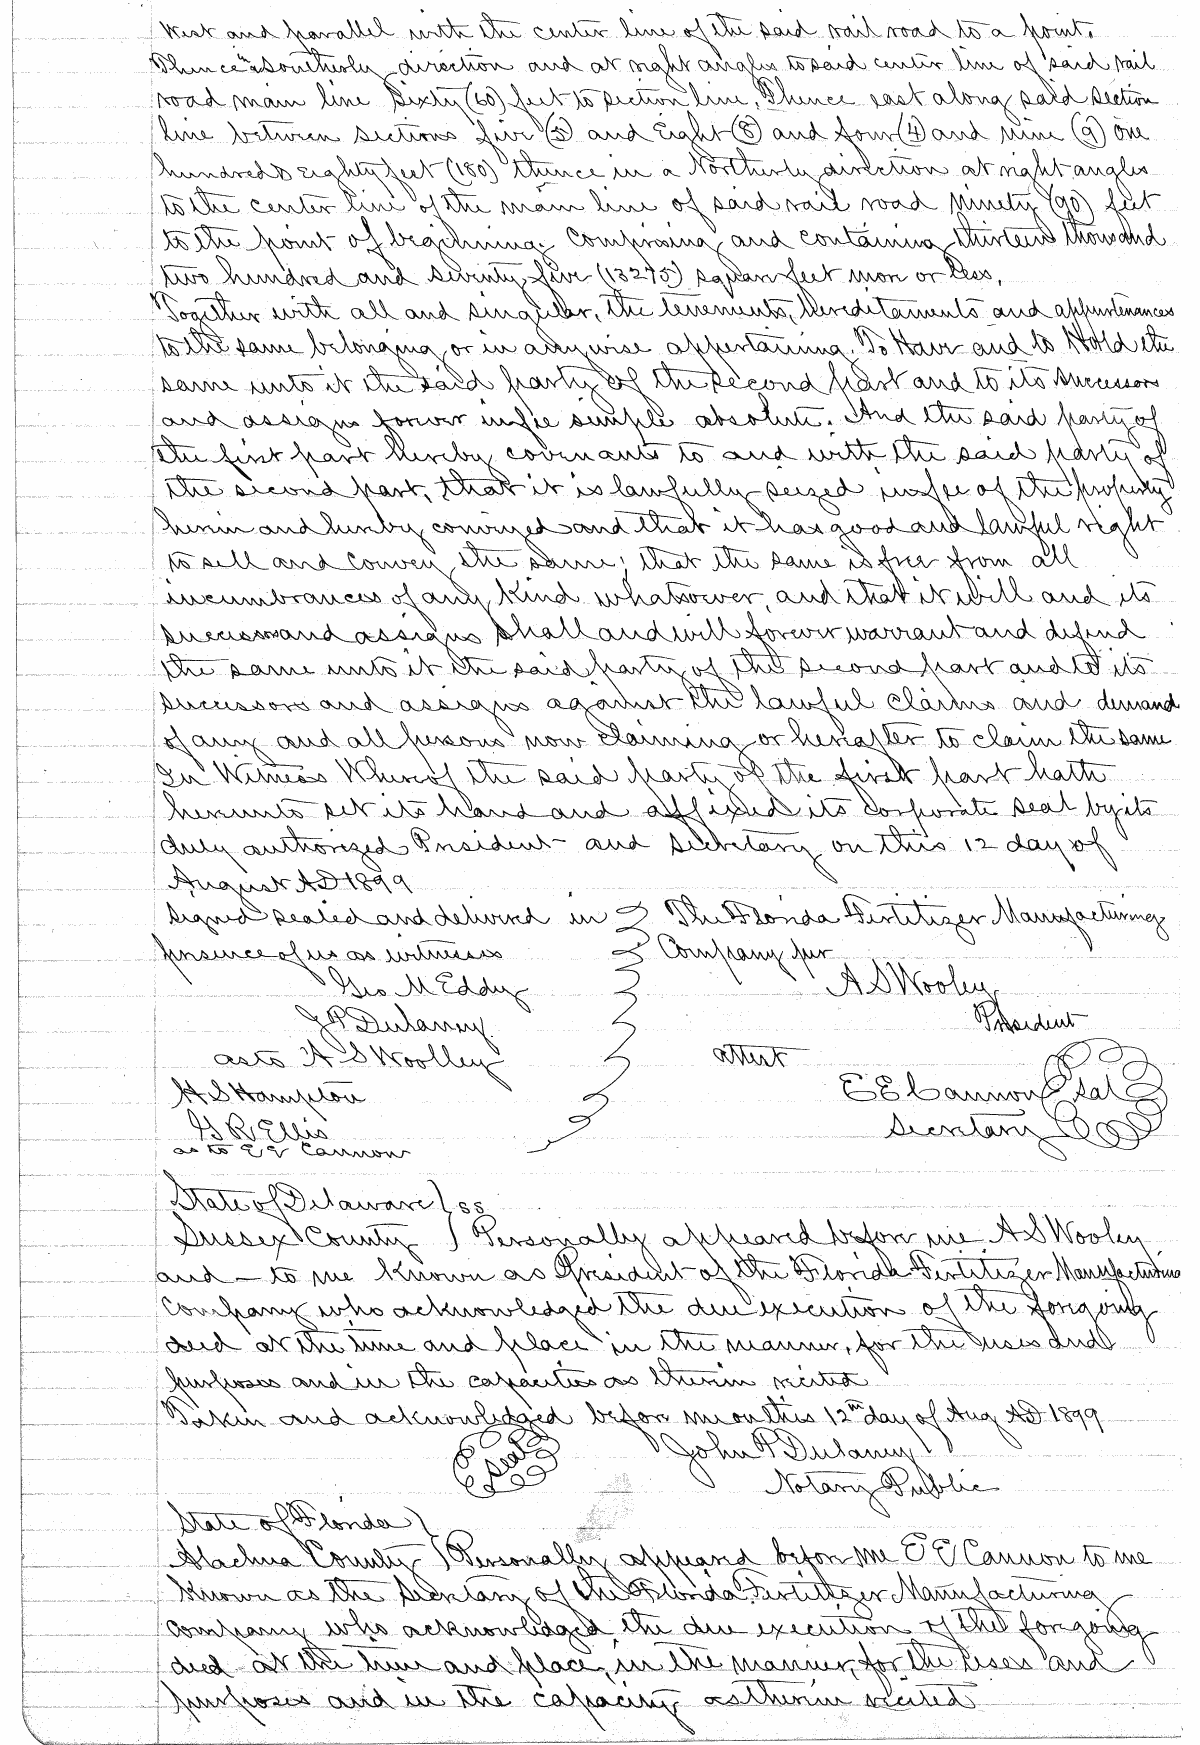 West and parallel with the center line of the said rail road to a point.
Thence a southerly direction and at right angles to said center line of said rail
road main line Sixty (60) feet to section line, Thence east along said section
line between sections five (5) and Eight (8) and four (4) and nine (9) One
hundred & Eighty feet (180) thence in a Northerly direction at right angles
to the center line of the main line of said rail road Ninety (90) feet
to the point of beginning. Comprising and containing thirteen thousand
two hundred and seventy five (13275) square feet more or less,
Together with all and singular, the tenements, hereditaments and appurtenances
to the same belonging or in anywise appertaining. To Have and to Hold the
same unto it the said party of the second part and to its successors
and assigns forever in fee simple absolute. And the said party of
the first part hereby covenants to and with the said party of
the second part, that it is lawfully seized in fee of the property
herein and hereby conveyed and that it has good and lawful right
to sell and convey the same; that the same is free from all
incumbrances of any kind whatsoever, and that it will and its
successors and assigns shall and will forever warrant and defend
the same unto it the said party of the second part and to its
successors and assigns against the lawful claims and demand
of any and all persons now claiming or hereafter to claim the same
In Witness Whereof the said party of the first part hath
hereunto set its hand and affixed its corporate seal by its
duly authorized President and Secretary on this 12 day of
August AD 1899
Signed sealed and delivered in The Florida Fertilizer Manufacturing
presence of us as witnesses Company per
Geo M Eddy A S Wooley
J P Dulaney President
as to A S Woolley attest
H S Hampton E E Cannon Seal
G R Ellis Secretary
as to E E Cannon
State of Delaware } ss
Sussex County } Personally appeared before me A S Wooley
and — to me known as President of the Florida Fertilizer Manufacturing
Company who acknowledged the due execution of the forgoing
deed at the time and place in the manner, for the uses and
purposes and in the capacities as therein recited
Taken and acknowledged before me on this 12th day of Aug AD 1899
Seal John P Dulaney
Notary Public
State of Florida }
Alachua County } Personally appeared before me E E Cannon to me
Known as the Secretary of the Florida Fertilizer Manufacturing
Company who acknowledged the due execution of the forgoing
deed at the time and place, in the manner, for the uses and
purposes and in the capacity as therein recited